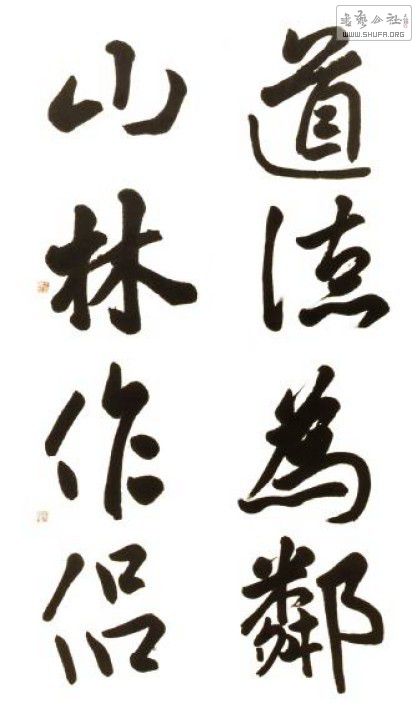 道德為鄰
山林作侶
書藝公社
WWW.SHUFA.ORG